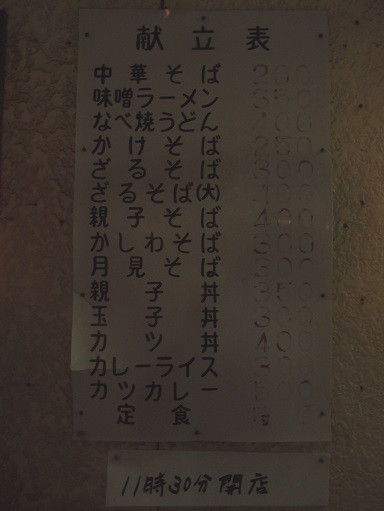 献立表
中華そば 250
味噌ラーメン 350
なべ焼うどん 400
かけそば 250
ざるそば 300
ざるそば(大)
親子そば 400
かしわそば 300
月見そば 300
親子丼 350
玉子丼
カツ丼
カレーライス
カツカレー
定食
11時30分開店